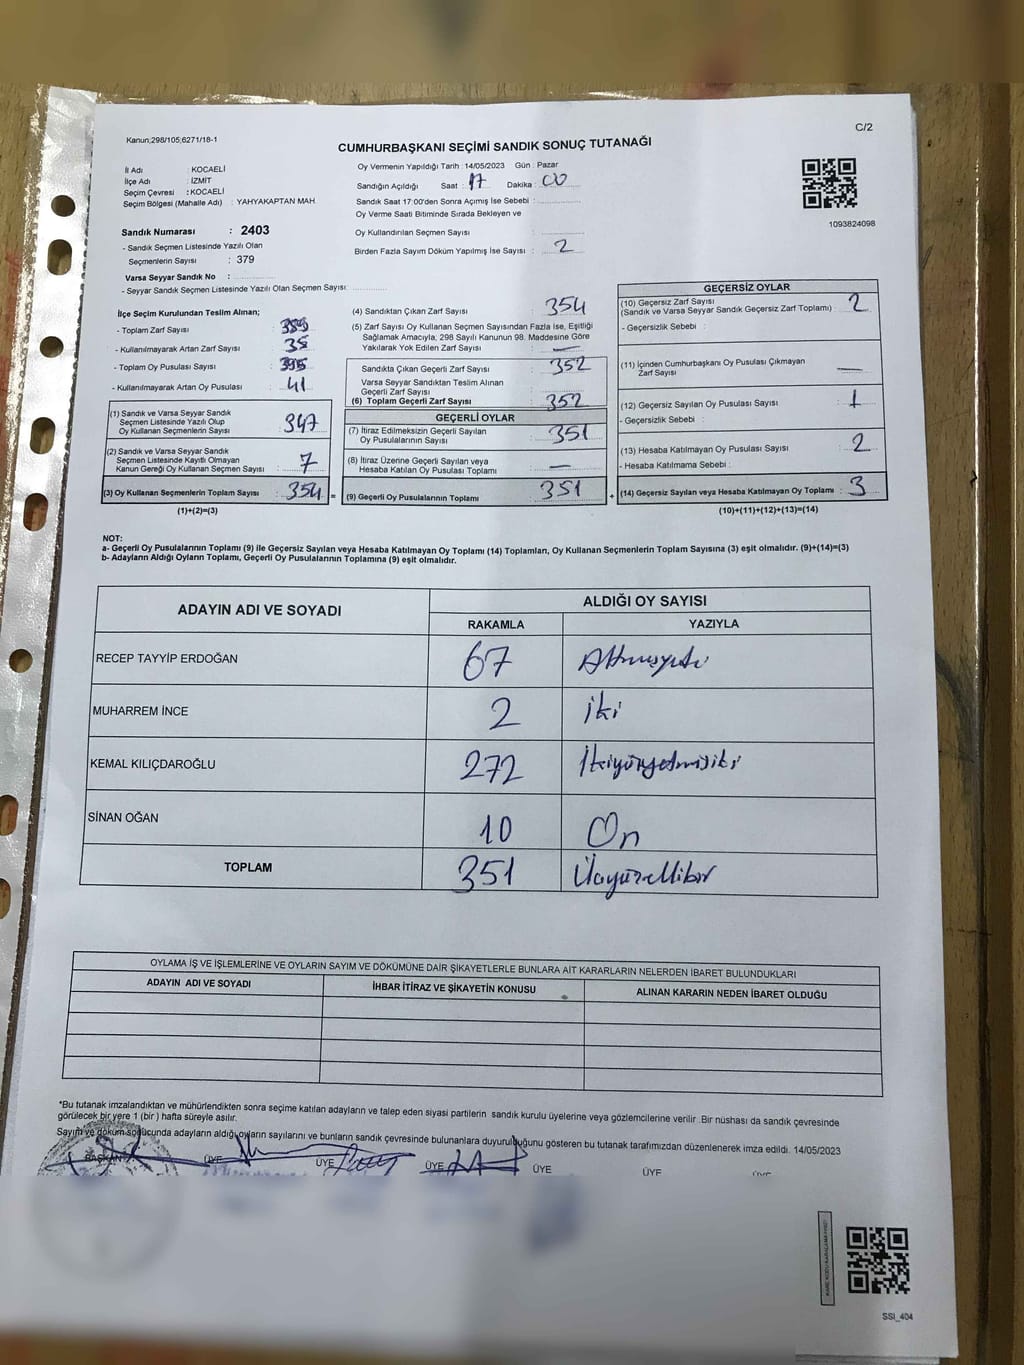 Kanun;298/105;6271/18-1
C/2
CUMHURBAŞKANI SEÇİMİ SANDIK SONUÇ TUTANAĞI
İl Adı : KOCAELİ
İlçe Adı : İZMİT
Seçim Çevresi : KOCAELİ
Seçim Bölgesi (Mahalle Adı) : YAHYAKAPTAN MAH.
Oy Vermenin Yapıldığı Tarih : 14/05/2023 Gün : Pazar
Sandığın Açıldığı Saat : 17 Dakika : 00
Sandık Saat 17:00'den Sonra Açımış İse Sebebi :
Oy Verme Saati Bitiminde Sırada Bekleyen ve
Oy Kullandırılan Seçmen Sayısı :
Birden Fazla Sayım Döküm Yapılmış İse Sayısı : 2
1093824098
Sandık Numarası : 2403
- Sandık Seçmen Listesinde Yazılı Olan
Seçmenlerin Sayısı : 379
Varsa Seyyar Sandık No :
- Seyyar Sandık Seçmen Listesinde Yazılı Olan Seçmen Sayısı:
İlçe Seçim Kurulundan Teslim Alınan;
- Toplam Zarf Sayısı :
- Kullanılmayarak Artan Zarf Sayısı : 35
- Toplam Oy Pusulası Sayısı : 395
- Kullanılmayarak Artan Oy Pusulası : 41
(1) Sandık ve Varsa Seyyar Sandık
Seçmen Listesinde Yazılı Olup
Oy Kullanan Seçmenlerin Sayısı : 347
(2) Sandık ve Varsa Seyyar Sandık
Seçmen Listesinde Kayıtlı Olmayan
Kanun Gereği Oy Kullanan Seçmen Sayısı : 7
(3) Oy Kullanan Seçmenlerin Toplam Sayısı : 354 =
(1)+(2)=(3)
(4) Sandıktan Çıkan Zarf Sayısı : 354
(5) Zarf Sayısı Oy Kullanan Seçmen Sayısından Fazla İse, Eşitliği
Sağlamak Amacıyla, 298 Sayılı Kanunun 98. Maddesine Göre
Yakılarak Yok Edilen Zarf Sayısı : —
Sandıkta Çıkan Geçerli Zarf Sayısı : 352
Varsa Seyyar Sandıktan Teslim Alınan
Geçerli Zarf Sayısı :
(6) Toplam Geçerli Zarf Sayısı : 352
GEÇERLİ OYLAR
(7) İtiraz Edilmeksizin Geçerli Sayılan
Oy Pusulalarının Sayısı : 351
(8) İtiraz Üzerine Geçerli Sayılan veya
Hesaba Katılan Oy Pusulası Toplamı : —
(9) Geçerli Oy Pusulalarının Toplamı : 351 +
GEÇERSİZ OYLAR
(10) Geçersiz Zarf Sayısı
(Sandık ve Varsa Seyyar Sandık Geçersiz Zarf Toplamı) : 2
- Geçersizlik Sebebi :
(11) İçinden Cumhurbaşkanı Oy Pusulası Çıkmayan
Zarf Sayısı : —
(12) Geçersiz Sayılan Oy Pusulası Sayısı : 1
- Geçersizlik Sebebi :
(13) Hesaba Katılmayan Oy Pusulası Sayısı : 2
- Hesaba Katılmama Sebebi :
(14) Geçersiz Sayılan veya Hesaba Katılmayan Oy Toplamı : 3
(10)+(11)+(12)+(13)=(14)
NOT:
a- Geçerli Oy Pusulalarının Toplamı (9) ile Geçersiz Sayılan veya Hesaba Katılmayan Oy Toplamı (14) Toplamları, Oy Kullanan Seçmenlerin Toplam Sayısına (3) eşit olmalıdır. (9)+(14)=(3)
b- Adayların Aldığı Oyların Toplamı, Geçerli Oy Pusulalarının Toplamına (9) eşit olmalıdır.
ADAYIN ADI VE SOYADI
ALDIĞI OY SAYISI
RAKAMLA YAZIYLA
RECEP TAYYİP ERDOĞAN 67 Altmışyedi
MUHARREM İNCE 2 iki
KEMAL KILIÇDAROĞLU 272 İkiyüzyetmişiki
SİNAN OĞAN 10 On
TOPLAM 351 Üçyüzellibir
OYLAMA İŞ VE İŞLEMLERİNE VE OYLARIN SAYIM VE DÖKÜMÜNE DAİR ŞİKAYETLERLE BUNLARA AİT KARARLARIN NELERDEN İBARET BULUNDUKLARI
ADAYIN ADI VE SOYADI İHBAR İTİRAZ VE ŞİKAYETİN KONUSU ALINAN KARARIN NEDEN İBARET OLDUĞU
*Bu tutanak imzalandıktan ve mühürlendikten sonra seçime katılan adayların ve talep eden siyasi partilerin sandık kurulu üyelerine veya gözlemcilerine verilir. Bir nüshası da sandık çevresinde
görülecek bir yere 1 (bir) hafta süreyle asılır.
Sayım ve döküm sonucunda adayların aldığı oyların sayılarını ve bunların sandık çevresinde bulunanlara duyurulduğunu gösteren bu tutanak tarafımızdan düzenlenerek imza edildi. 14/05/2023
BAŞKAN ÜYE ÜYE ÜYE ÜYE ÜYE ÜYE
SSI_404